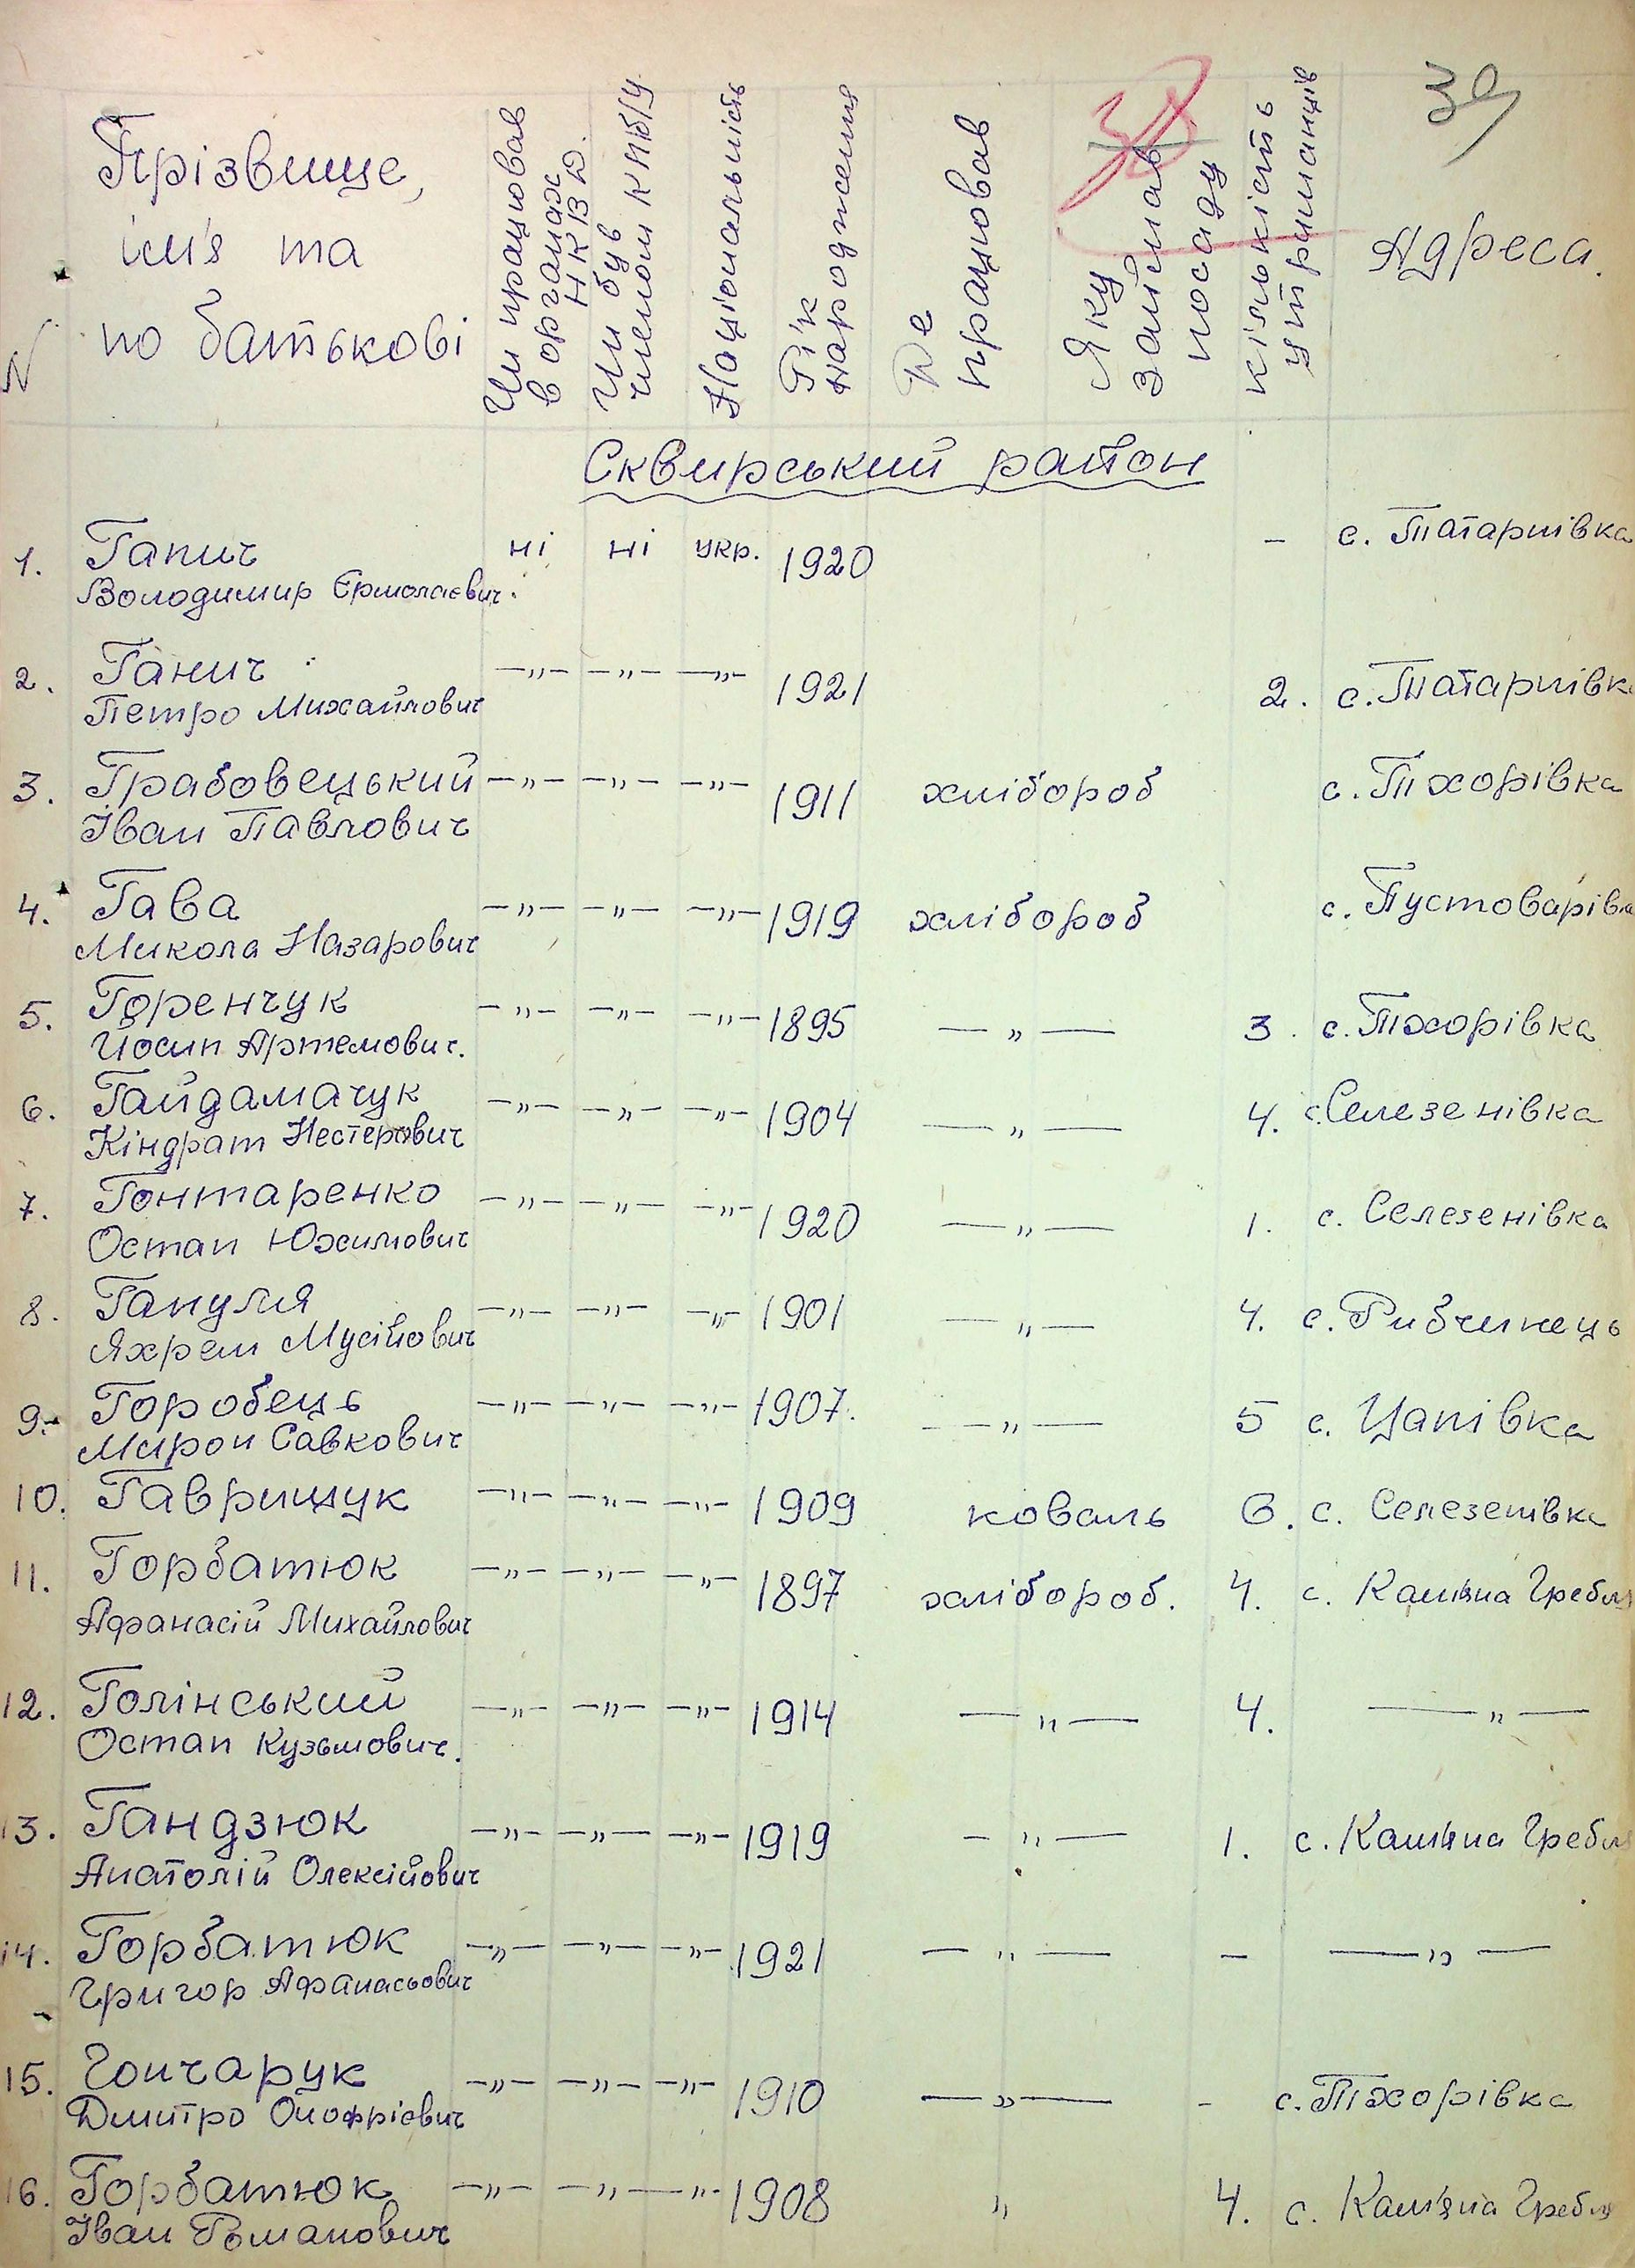 39
38
N
Прізвище,
ім'я та
по батькові
Чи працював
в органах
НКВД.
Чи був
членом КПб/У
Національність
Рік
народження
Де
працював
Яку
займав
посаду
кількість
утриманців
Адреса.
Сквирський район
1. Ганич ні ні укр. 1920 - с. Татарнівка
Володимир Єрмолаєвич.
2. Ганич —"— —"— —"— 1921 2. с. Татарнівка
Петро Михайлович
3. Грабовецький —"— —"— —"— 1911 хлібороб с. Тхорівка
Іван Павлович
4. Гава —"— —"— —"— 1919 хлібороб с. Пустоварівка
Микола Назарович
5. Горенчук —"— —"— —"— 1895 —"— 3. с. Тхорівка
Йосип Артемович.
6. Гайдамачук —"— —"— —"— 1904 —"— 4. с. Селезенівка
Кіндрат Нестерович
7. Гонтаренко —"— —"— —"— 1920 —"— 1. с. Селезенівка
Остап Юхимович
8. Гапуля —"— —"— —"— 1901 —"— 4. с. Рибчинець
Яхрем Мусійович
9. Горобець —"— —"— —"— 1907. —"— 5 с. Цапівка
Мирон Савкович
10. Гаврищук —"— —"— —"— 1909 коваль 6. с. Селезенівка
11. Горбатюк —"— —"— —"— 1897 хлібороб. 4. с. Кам'яна Гребля
Афанасій Михайлович
12. Голінський —"— —"— —"— 1914 —"— 4. —"—
Остап Кузьмович.
13. Гандзюк —"— —"— —"— 1919 —"— 1. с. Кам'яна Гребля
Анатолій Олексійович
14. Горбатюк —"— —"— —"— 1921 —"— - —"—
Григор Афанасьович
15. Гончарук —"— —"— —"— 1910 —"— - с. Тхорівка
Дмитро Онофрієвич
16. Горбатюк —"— —"— —"— 1908 " 4. с. Кам'яна Гребля
Іван Романович